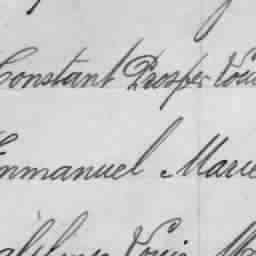 Constant Prosper Loui
Emmanuel Marie
Louis